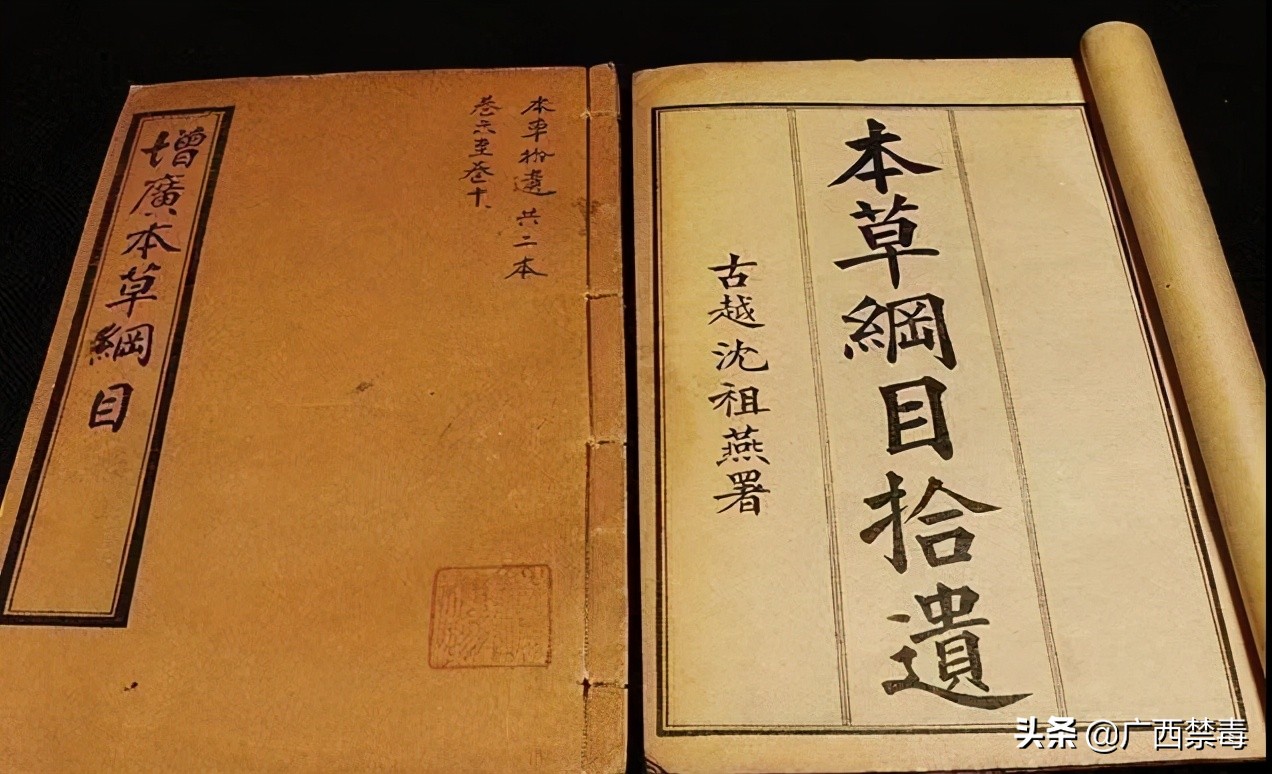 增廣本草綱目
本草拾遺 共二本
卷六至卷十
本草綱目拾遺
古越沈祖燕署
头条 @广西禁毒